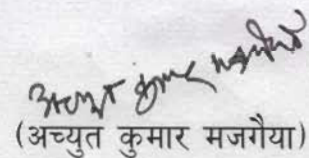 अच्युत कुमार मजगैया
(अच्युत कुमार मजगैया)